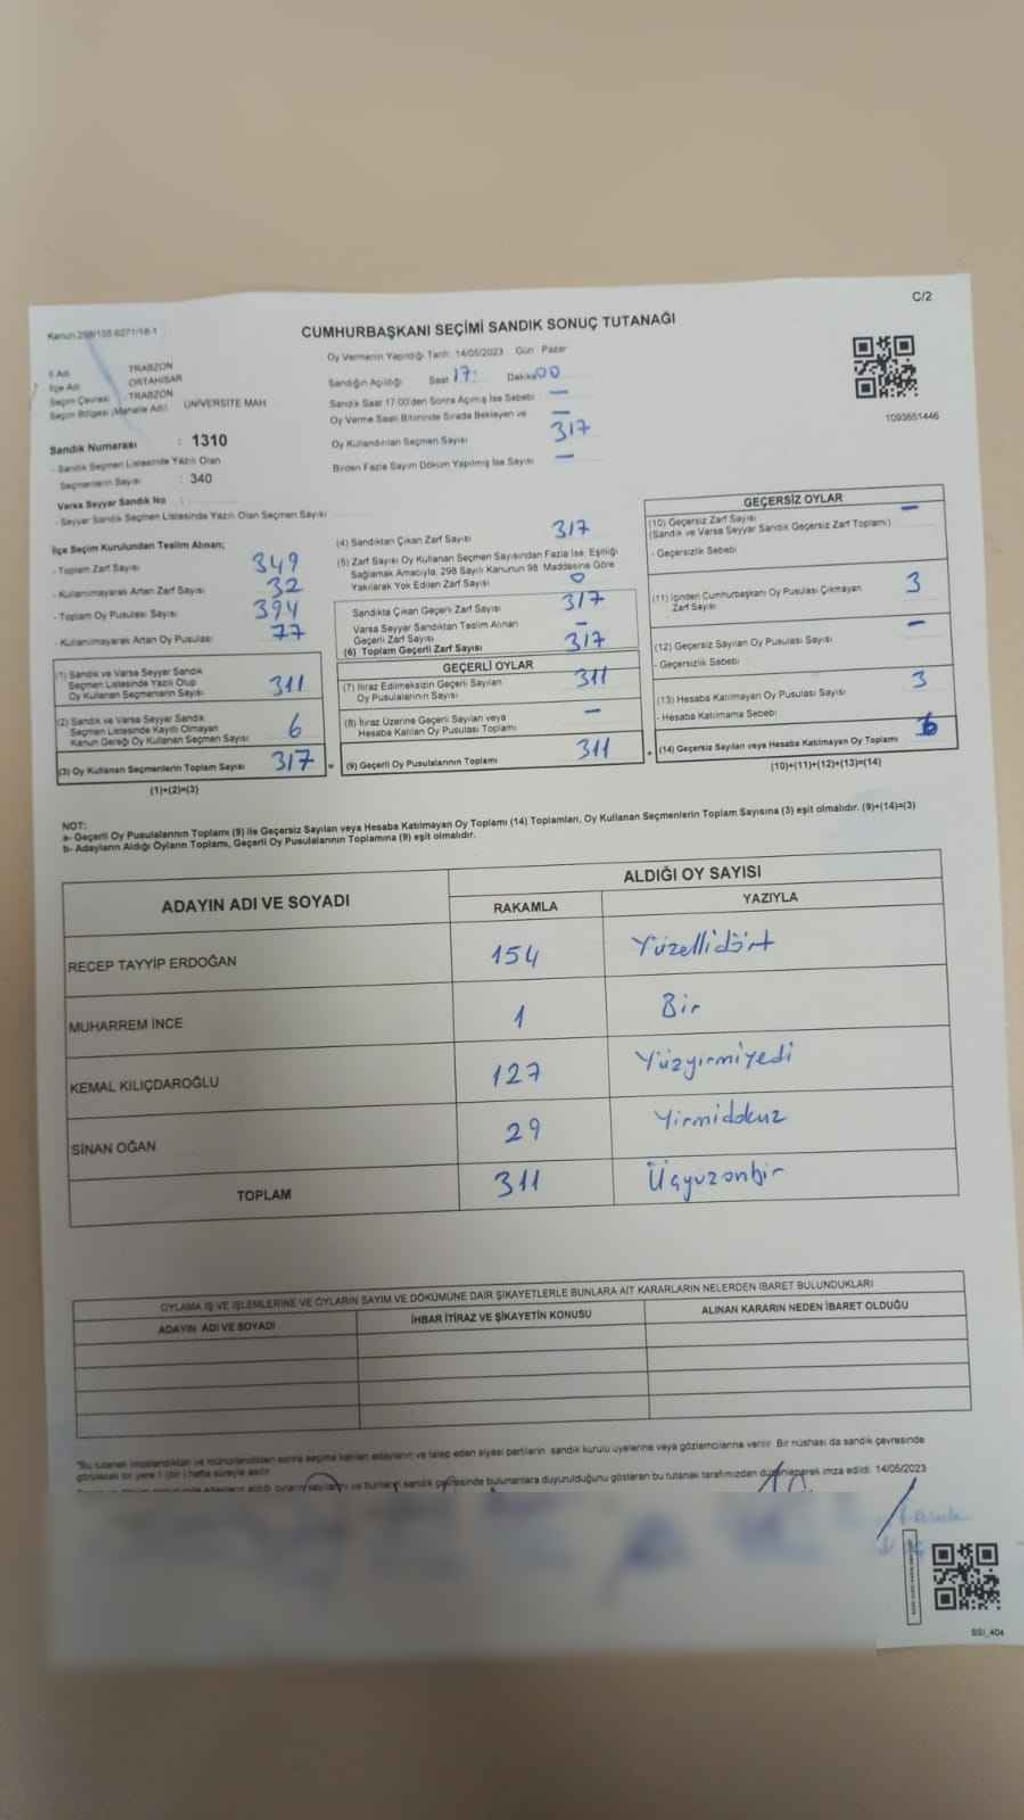 C/2
Kanun 298/105 6271/18-1
CUMHURBAŞKANI SEÇİMİ SANDIK SONUÇ TUTANAĞI
Oy Vermenin Yapıldığı Tarih: 14/05/2023 Gün: Pazar
İl Adı: TRABZON
İlçe Adı: ORTAHİSAR
Seçim Çevresi: TRABZON
Seçim Bölgesi (Mahalle Adı): ÜNİVERSİTE MAH
Sandık Numarası : 1310
- Sandık Seçmen Listesinde Yazılı Olan
Seçmenlerin Sayısı : 340
Varsa Seyyar Sandık No :
- Seyyar Sandık Seçmen Listesinde Yazılı Olan Seçmen Sayısı
Sandığın Açıldığı Saat 17: Dakika 00
Sandık Saat 17.00'den Sonra Açılmış İse Sebebi —
Oy Verme Saati Bitiminde Sırada Bekleyen ve —
Oy Kullandırılan Seçmen Sayısı 317
Birden Fazla Sayım Döküm Yapılmış İse Sayısı —
1093651446
İlçe Seçim Kurulundan Teslim Alınan;
- Toplam Zarf Sayısı 349
- Kullanılmayarak Artan Zarf Sayısı 32
- Toplam Oy Pusulası Sayısı 394
- Kullanılmayarak Artan Oy Pusulası 77
(1) Sandık ve Varsa Seyyar Sandık
Seçmen Listesinde Yazılı Olup
Oy Kullanan Seçmenlerin Sayısı 311
(2) Sandık ve Varsa Seyyar Sandık
Seçmen Listesinde Kayıtlı Olmayan
Kanun Gereği Oy Kullanan Seçmen Sayısı 6
(3) Oy Kullanan Seçmenlerin Toplam Sayısı 317
(1)+(2)=(3)
(4) Sandıktan Çıkan Zarf Sayısı 317
(5) Zarf Sayısı Oy Kullanan Seçmen Sayısından Fazla İse, Eşitliği
Sağlamak Amacıyla, 298 Sayılı Kanunun 98. Maddesine Göre
Yakılarak Yok Edilen Zarf Sayısı 0
Sandıkta Çıkan Geçerli Zarf Sayısı 317
Varsa Seyyar Sandıktan Teslim Alınan
Geçerli Zarf Sayısı —
(6) Toplam Geçerli Zarf Sayısı 317
GEÇERLİ OYLAR
(7) İtiraz Edilmeksizin Geçerli Sayılan
Oy Pusulalarının Sayısı 311
(8) İtiraz Üzerine Geçerli Sayılan veya
Hesaba Katılan Oy Pusulası Toplamı —
= (9) Geçerli Oy Pusulalarının Toplamı 311
GEÇERSİZ OYLAR
(10) Geçersiz Zarf Sayısı —
(Sandık ve Varsa Seyyar Sandık Geçersiz Zarf Toplamı)
- Geçersizlik Sebebi
(11) İçinden Cumhurbaşkanı Oy Pusulası Çıkmayan
Zarf Sayısı 3
(12) Geçersiz Sayılan Oy Pusulası Sayısı —
- Geçersizlik Sebebi
(13) Hesaba Katılmayan Oy Pusulası Sayısı 3
- Hesaba Katılmama Sebebi
+ (14) Geçersiz Sayılan veya Hesaba Katılmayan Oy Toplamı 6
(10)+(11)+(12)+(13)=(14)
NOT:
a- Geçerli Oy Pusulalarının Toplamı (9) ile Geçersiz Sayılan veya Hesaba Katılmayan Oy Toplamı (14) Toplamları, Oy Kullanan Seçmenlerin Toplam Sayısına (3) eşit olmalıdır. (9)+(14)=(3)
b- Adayların Aldığı Oyların Toplamı, Geçerli Oy Pusulalarının Toplamına (9) eşit olmalıdır.
ADAYIN ADI VE SOYADI
ALDIĞI OY SAYISI
RAKAMLA YAZIYLA
RECEP TAYYİP ERDOĞAN 154 Yüzellidört
MUHARREM İNCE 1 Bir
KEMAL KILIÇDAROĞLU 127 Yüzyirmiyedi
SİNAN OĞAN 29 Yirmidokuz
TOPLAM 311 Üçyüzonbir
OYLAMA İŞ VE İŞLEMLERİNE VE OYLARIN SAYIM VE DÖKÜMÜNE DAİR ŞİKAYETLERLE BUNLARA AİT KARARLARIN NELERDEN İBARET BULUNDUKLARI
ADAYIN ADI VE SOYADI İHBAR İTİRAZ VE ŞİKAYETİN KONUSU ALINAN KARARIN NEDEN İBARET OLDUĞU
"Bu tutanak imzalandıktan ve mühürlendikten sonra seçime katılan adayların ve talep eden siyasi partilerin sandık kurulu üyelerine veya gözlemcilerine verilir. Bir nüshası da sandık çevresinde
görülebilen bir yere 1 (bir) hafta süreyle asılır.
sandık çevresinde bulunanlara duyurulduğunu gösteren bu tutanak tarafımızdan düzenlenerek imza edildi. 14/05/2023
SSI_404